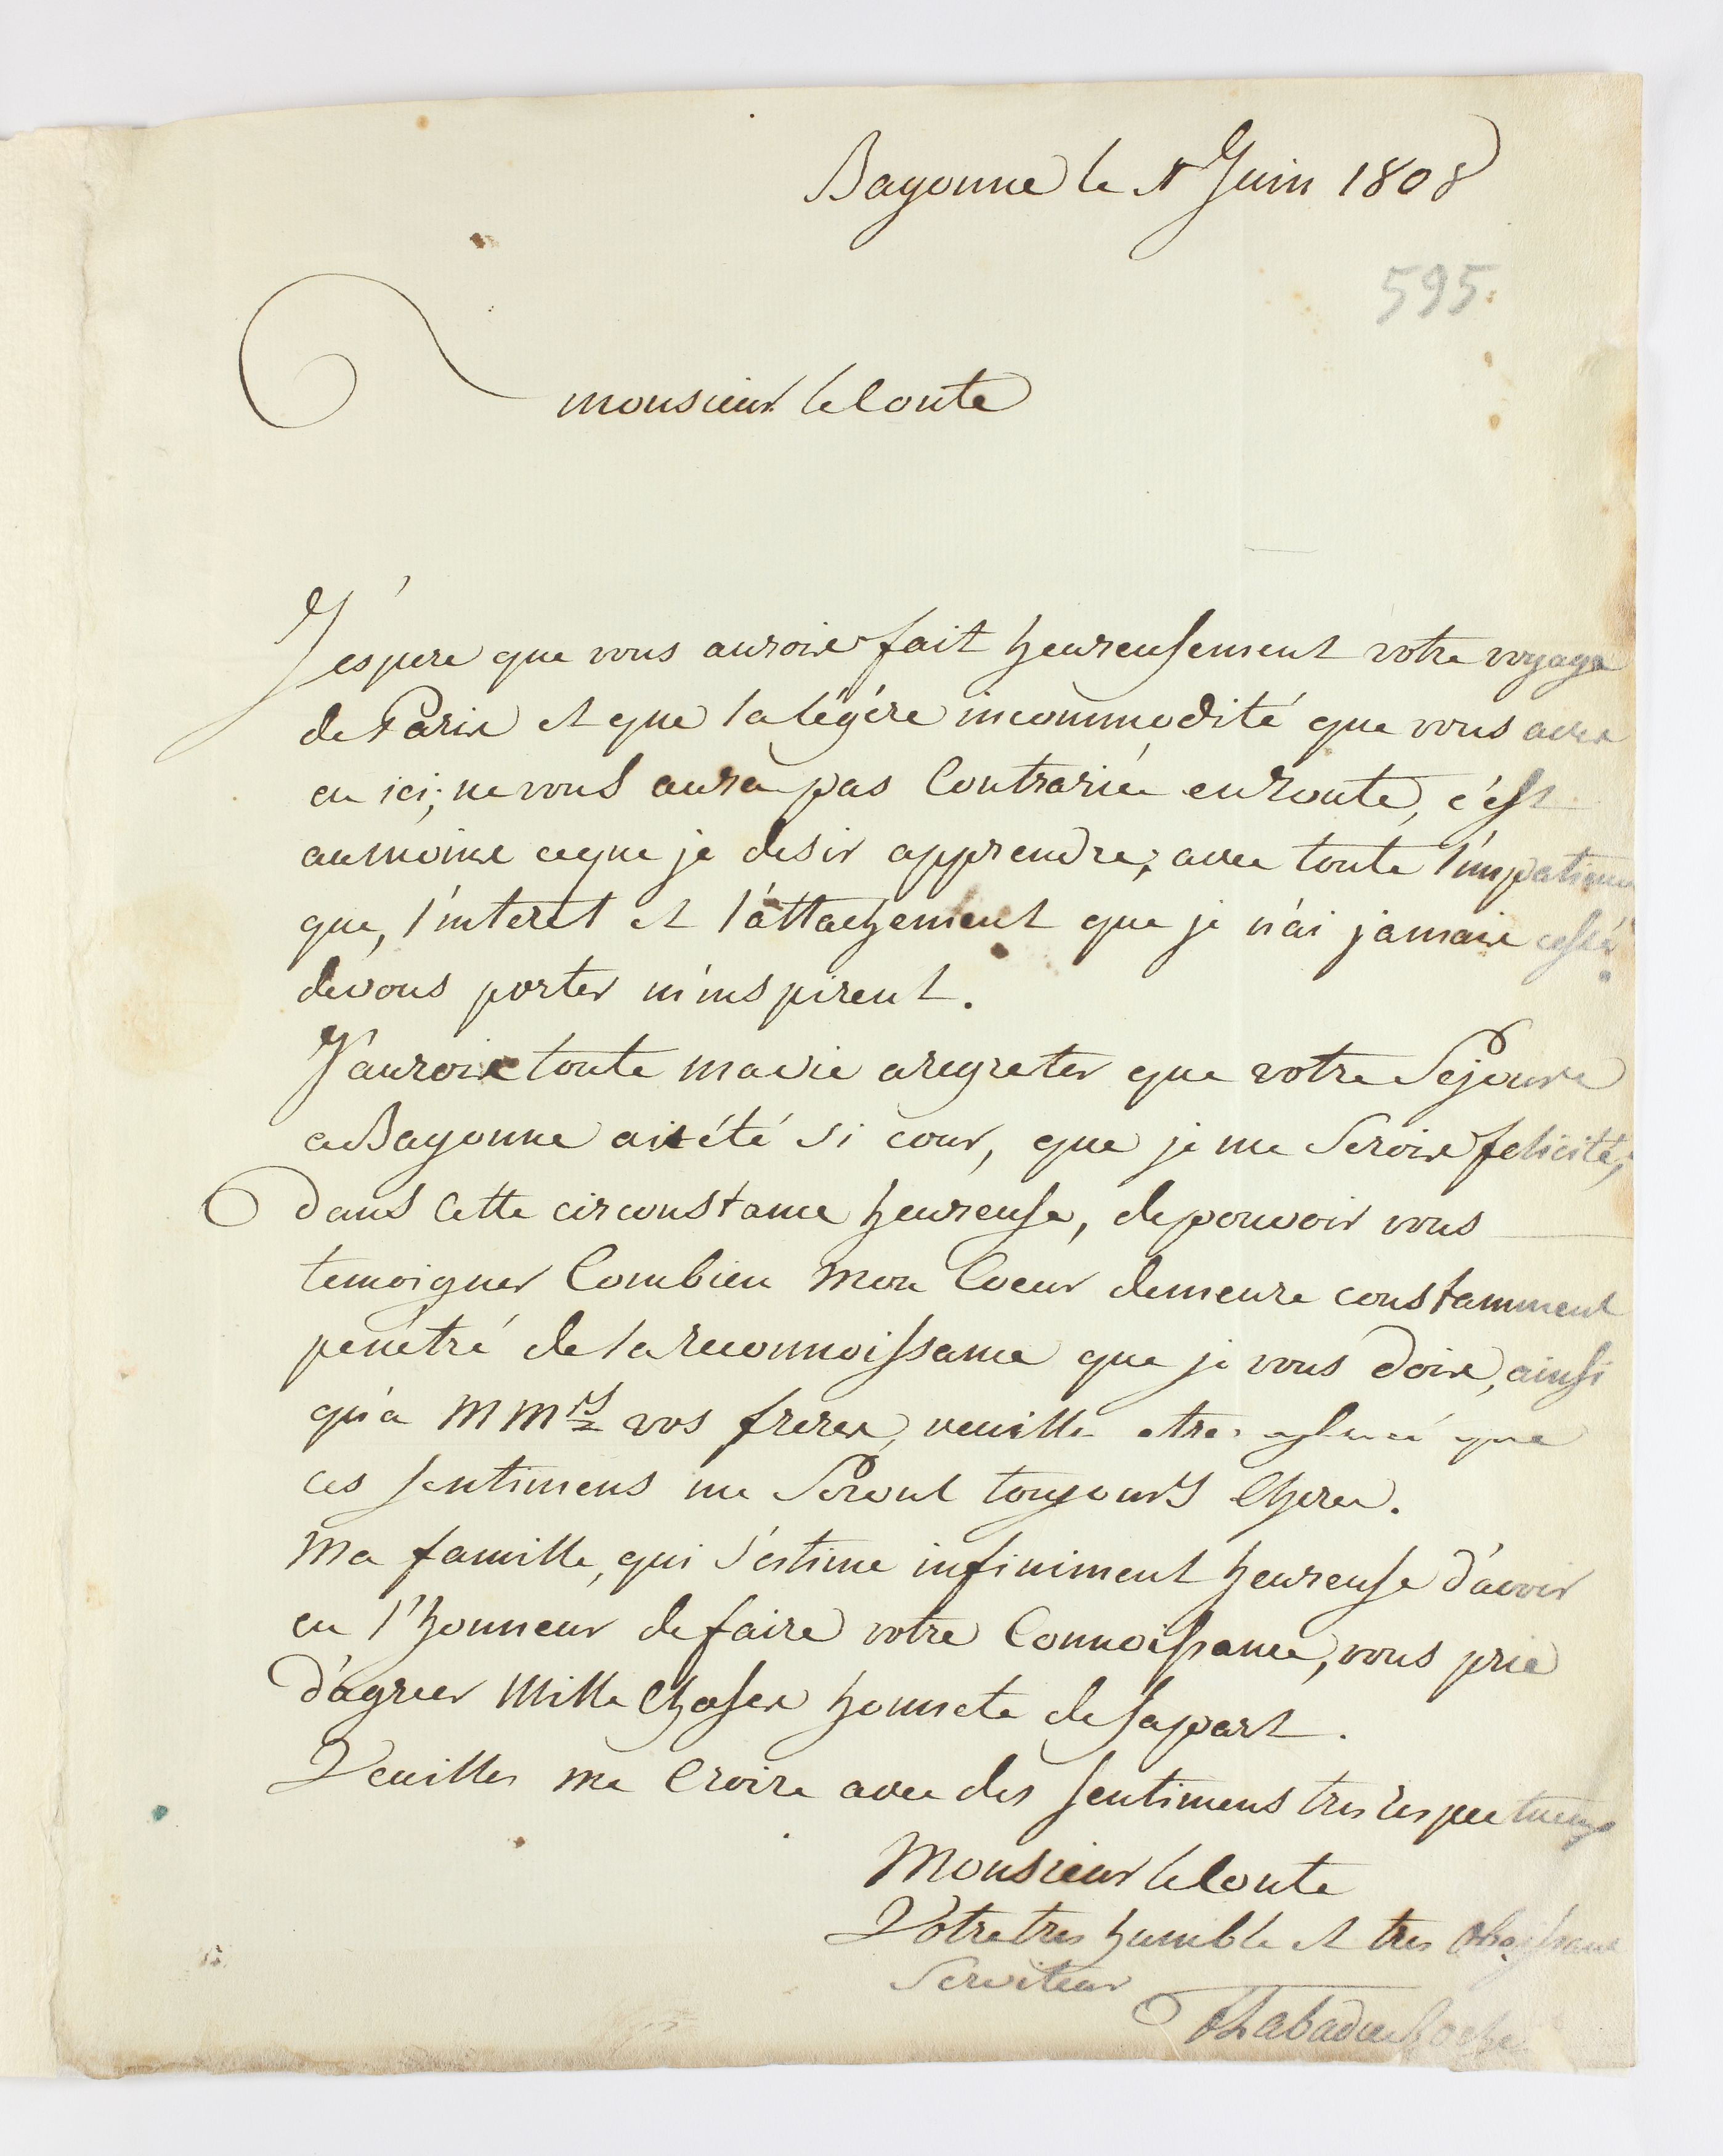 Bayonne le Juin 1808
595.
monsieur le Conte
J'espere que vous aurois fait heureusement votre voyage
de Paris et que la légére incommodité que vous aves
eu ici; ne vous aura pas Contrarié en route, c'est
au moins ceque je desir apprendre; avec toute l'impatience
que, l'interet et l'attachement que je n'ai jamais cessé
de vous porter m'inspirent.
J'aurois toute ma vie a regreter que votre Sejoure
a Bayonne ait été si cour, que je me Serois felicité,
dans Cette circonstance heureuse, de pouvoir vous
temoigner Combien mon Coeur demeure constamment
penetré de la reconnoissance que je vous dois, ainsi
qu'a MMrs vos freres, veuille etre assuré que
ces sentimens me Seront toujours Cheres.
Ma famille, qui s'estime infiniment heureuse d'avoir
eu l'honneur de faire votre Connoissance, vous prie
d'agreer Mille Choses honnete de sa part.
Veuilles me Croire avec des sentimens tres respectueux
Monsieur le Conte
Votre tres humble et tres Obeissant
Serviteur